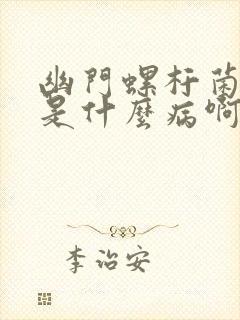 幽門螺杆菌
是什麼病啊
李治安